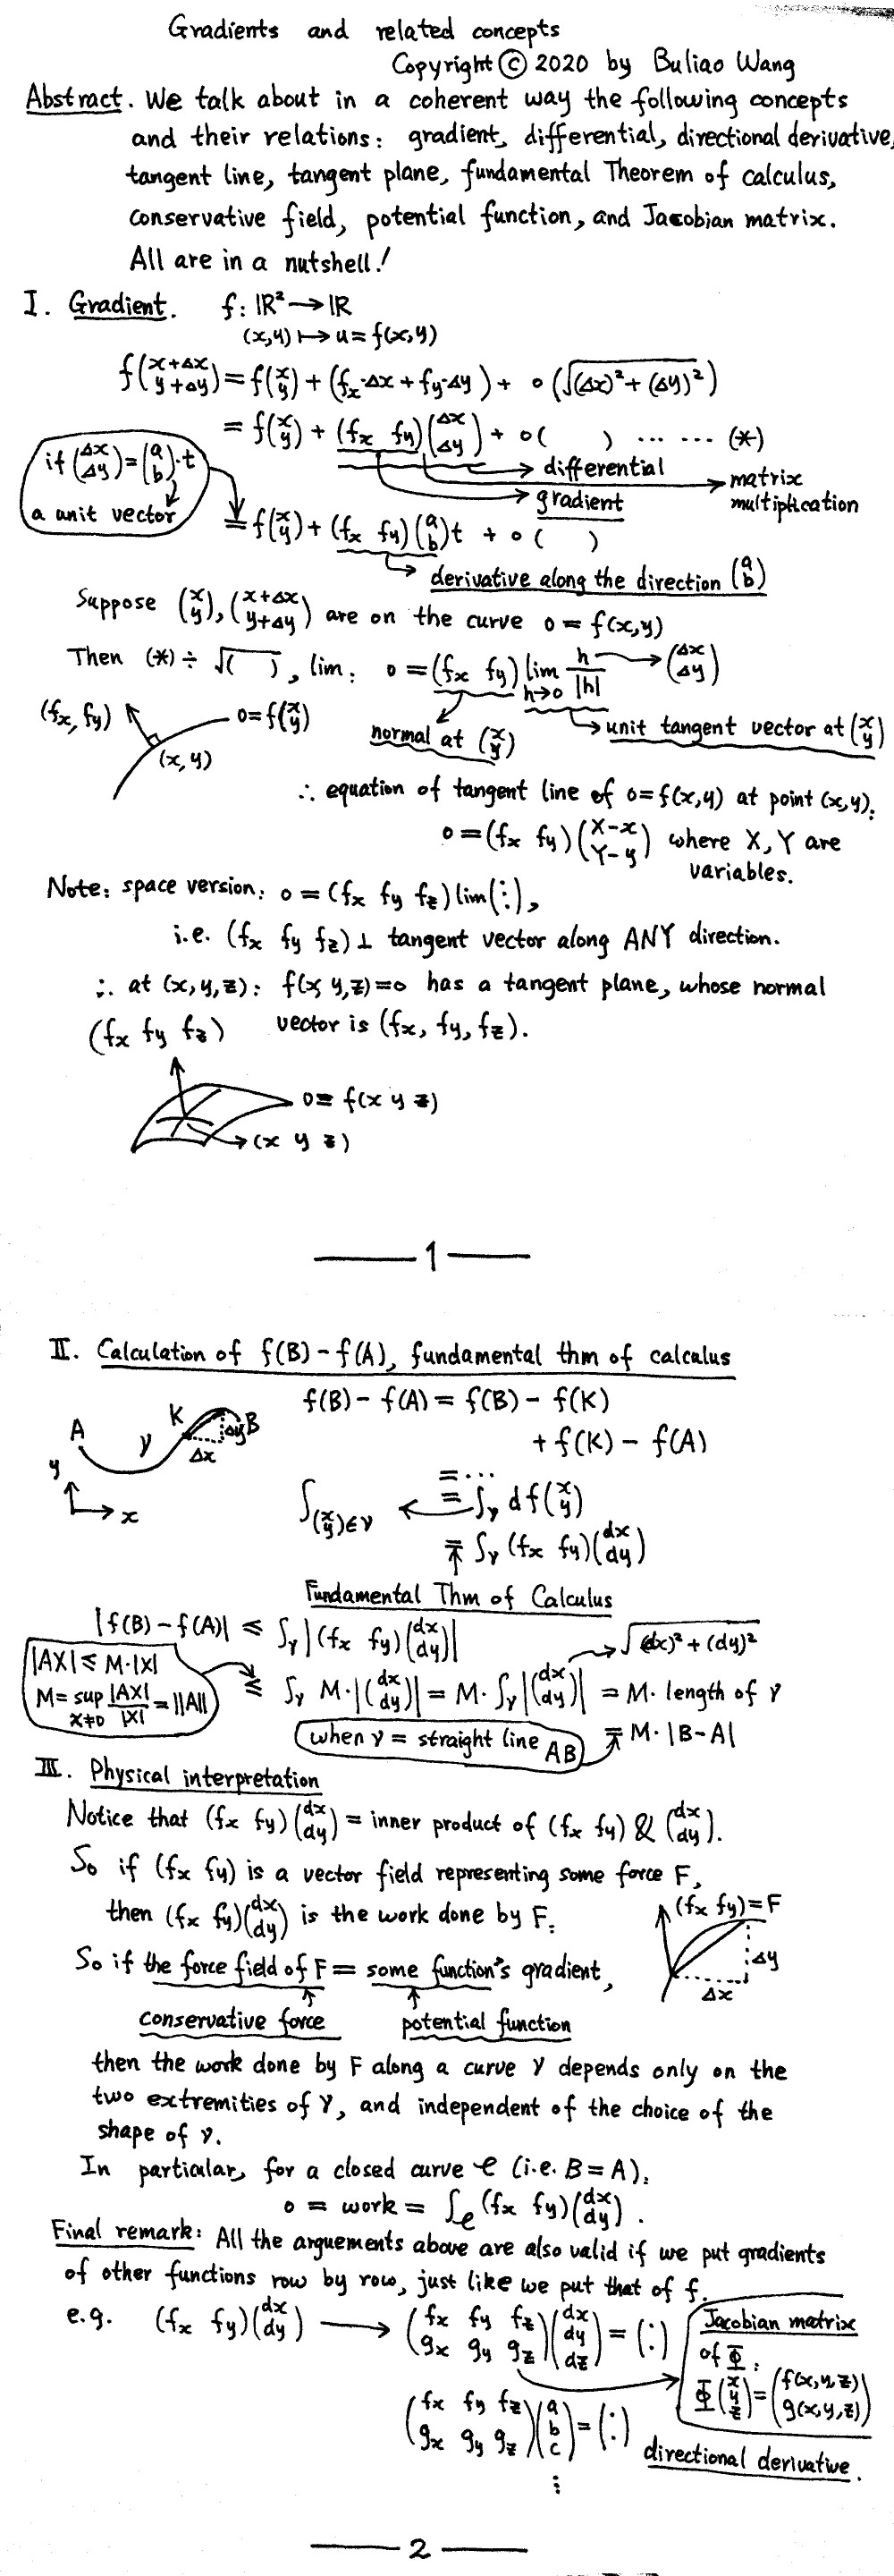 Gradients and related concepts
Copyright © 2020 by Buliao Wang
Abstract. We talk about in a coherent way the following concepts
and their relations: gradient, differential, directional derivative,
tangent line, tangent plane, fundamental Theorem of calculus,
conservative field, potential function, and Jacobian matrix.
All are in a nutshell!
I. Gradient. f: ℝ² → ℝ
(x,y) ↦ u = f(x,y)
f(x+Δx y+Δy) = f(x y) + (fx·Δx + fy·Δy) + o(√((Δx)² + (Δy)²))
= f(x y) + (fx fy)(Δx Δy) + o( ) ... ... (*)
→ differential
→ matrix multiplication
→ gradient
if (Δx Δy) = (a b)·t
a unit vector
= f(x y) + (fx fy)(a b)t + o( )
→ derivative along the direction (a b)
Suppose (x y), (x+Δx y+Δy) are on the curve 0 = f(x,y)
Then (*) ÷ √( ), lim: 0 = (fx fy) lim h→0 h/|h| → (Δx Δy)
normal at (x y)
→ unit tangent vector at (x y)
(fx, fy)
0 = f(x y)
(x, y)
∴ equation of tangent line of 0 = f(x,y) at point (x,y):
0 = (fx fy)(X-x Y-y) where X, Y are
variables.
Note: space version: 0 = (fx fy fz) lim(⋮),
i.e. (fx fy fz) ⊥ tangent vector along ANY direction.
∴ at (x,y,z): f(x y,z)=0 has a tangent plane, whose normal
vector is (fx, fy, fz).
(fx fy fz)
0 = f(x y z)
→ (x y z)
— 1 —
II. Calculation of f(B) - f(A), fundamental thm of calculus
f(B) - f(A) = f(B) - f(K)
+ f(K) - f(A)
A γ K B Δy
Δx
y
x
= ...
∫(x y)∈γ ← = ∫γ df(x y)
= ∫γ (fx fy)(dx dy)
↑
Fundamental Thm of Calculus
|f(B) - f(A)| ≤ ∫γ |(fx fy)(dx dy)|
→ √((dx)² + (dy)²)
|AX| ≤ M·|X|
M = sup x≠0 |AX|/|X| = ||A||
≤ ∫γ M·|(dx dy)| = M·∫γ |(dx dy)| = M· length of γ
when γ = straight line AB
= M·|B-A|
III. Physical interpretation
Notice that (fx fy)(dx dy) = inner product of (fx fy) & (dx dy).
So if (fx fy) is a vector field representing some force F,
then (fx fy)(dx dy) is the work done by F.
(fx fy) = F
Δy
Δx
So if the force field of F = some function's gradient,
conservative force
potential function
then the work done by F along a curve γ depends only on the
two extremities of γ, and independent of the choice of the
shape of γ.
In particular, for a closed curve C (i.e. B = A),
0 = work = ∫C (fx fy)(dx dy).
Final remark: All the arguements above are also valid if we put gradients
of other functions row by row, just like we put that of f.
e.g. (fx fy)(dx dy) → (fx fy fz gx gy gz)(dx dy dz) = (:)
Jacobian matrix
of Φ:
Φ(x y z) = (f(x,y,z) g(x,y,z))
(fx fy fz gx gy gz)(a b c) = (:)
directional derivative.
⋮
— 2 —